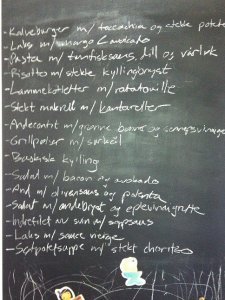 - Kalveburger m/ focaccia og stekte potete
- Laks m/ mango & avocado
- Pasta m/ tunfisksaus, dill og vårløk
- Risotto m/ stekte kyllingbryst
- Lammekotletter m/ ratatouille
- Stekt makrell m/ kantareller
- Andeconfit m/ grønne bønner og
- Grillpølser m/ surkål
- Baskisk kylling
- Salat m/ bacon og avokado
- And m/ olivensaus og polenta
- Salat m/ andebryst og eplevinaigrette
- Indrefilet av svin m/ soppsaus
- Laks m/ sauce vierge
- Søtpotetsuppe m/ stekt chorizo